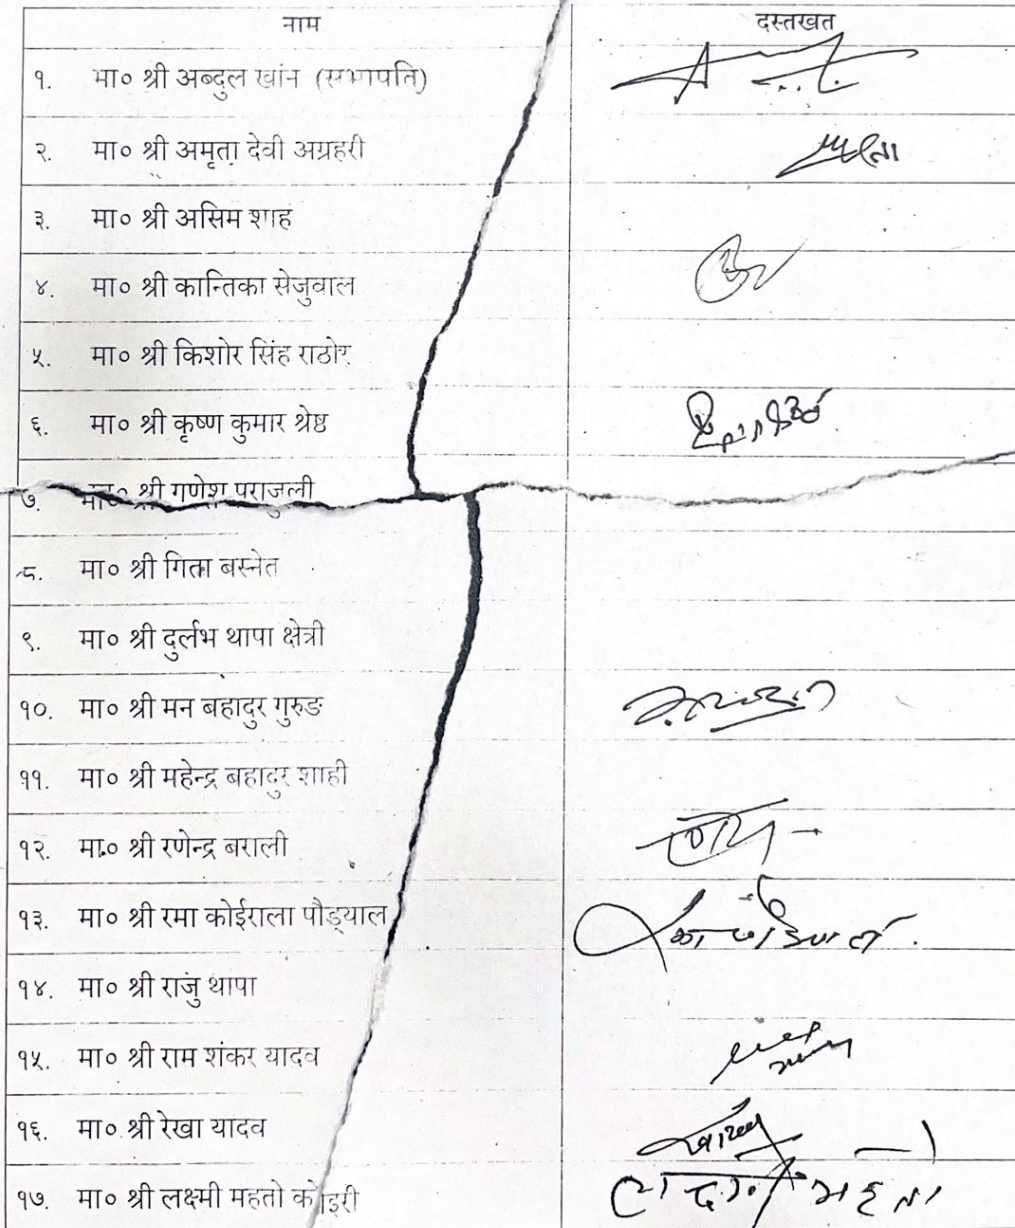 नाम दस्तखत
१. मा० श्री अब्दुल खांन (सभापति)
२. मा० श्री अमृता देवी अग्रहरी
३. मा० श्री असिम शाह
४. मा० श्री कान्तिका सेजुवाल
५. मा० श्री किशोर सिंह राठोर
६. मा० श्री कृष्ण कुमार श्रेष्ठ
७. मा० श्री गणेश पराजुली
८. मा० श्री गिता बस्नेत
९. मा० श्री दुर्लभ थापा क्षेत्री
१०. मा० श्री मन बहादुर गुरुङ
११. मा० श्री महेन्द्र बहादुर शाही
१२. मा० श्री रणेन्द्र बराली
१३. मा० श्री रमा कोईराला पौड्याल
१४. मा० श्री राजु थापा
१५. मा० श्री राम शंकर यादव
१६. मा० श्री रेखा यादव
१७. मा० श्री लक्ष्मी महतो कोइरी